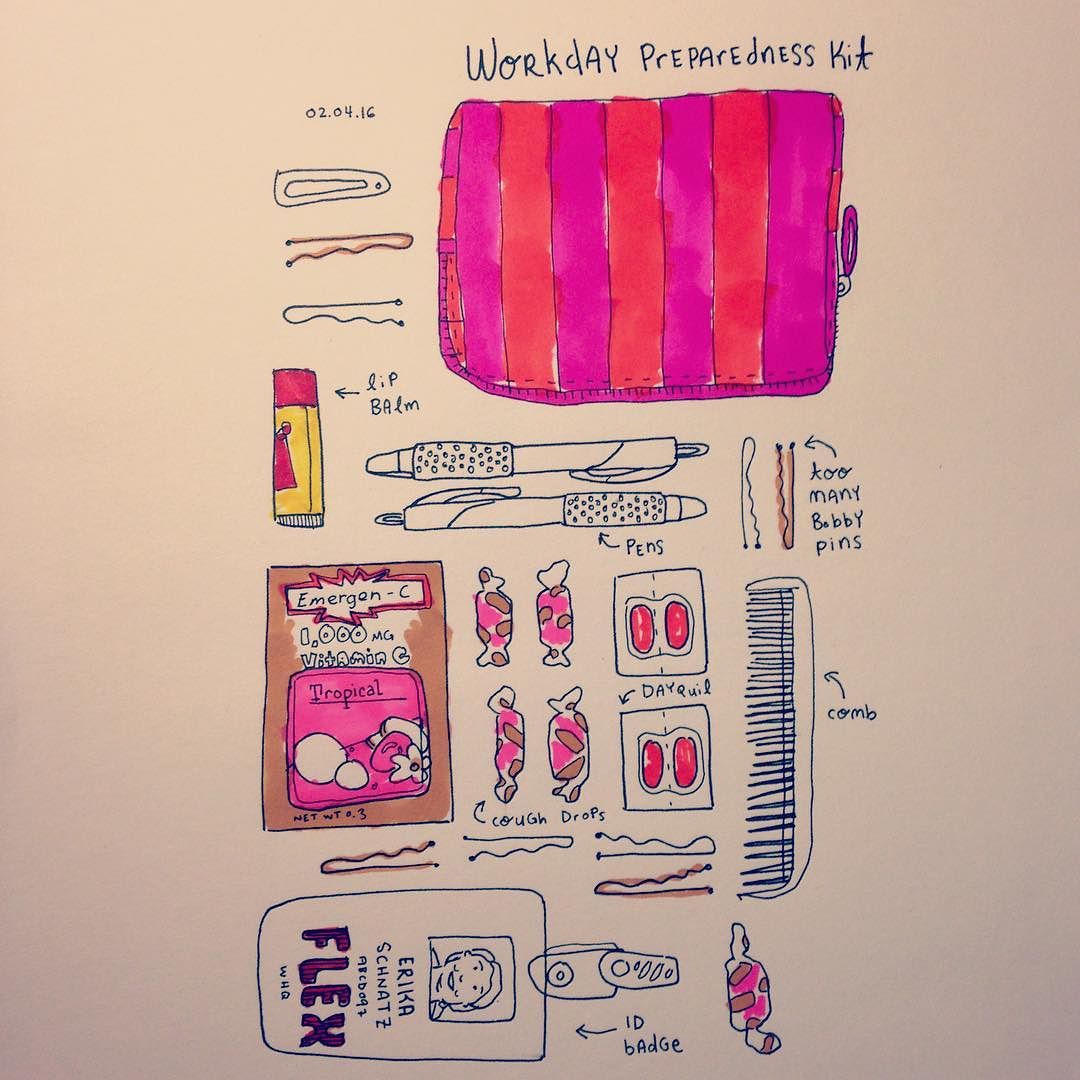 Workday Preparedness Kit
02.04.16
lip
Balm
too
many
Bobby
pins
Pens
Emergen-C
1,000 MG
Vitamin C
Tropical
NET WT 0.3
DAYquil
comb
cough Drops
ERIKA
SCHNATZ
ABCD097
FLEX
WHQ
ID
badge